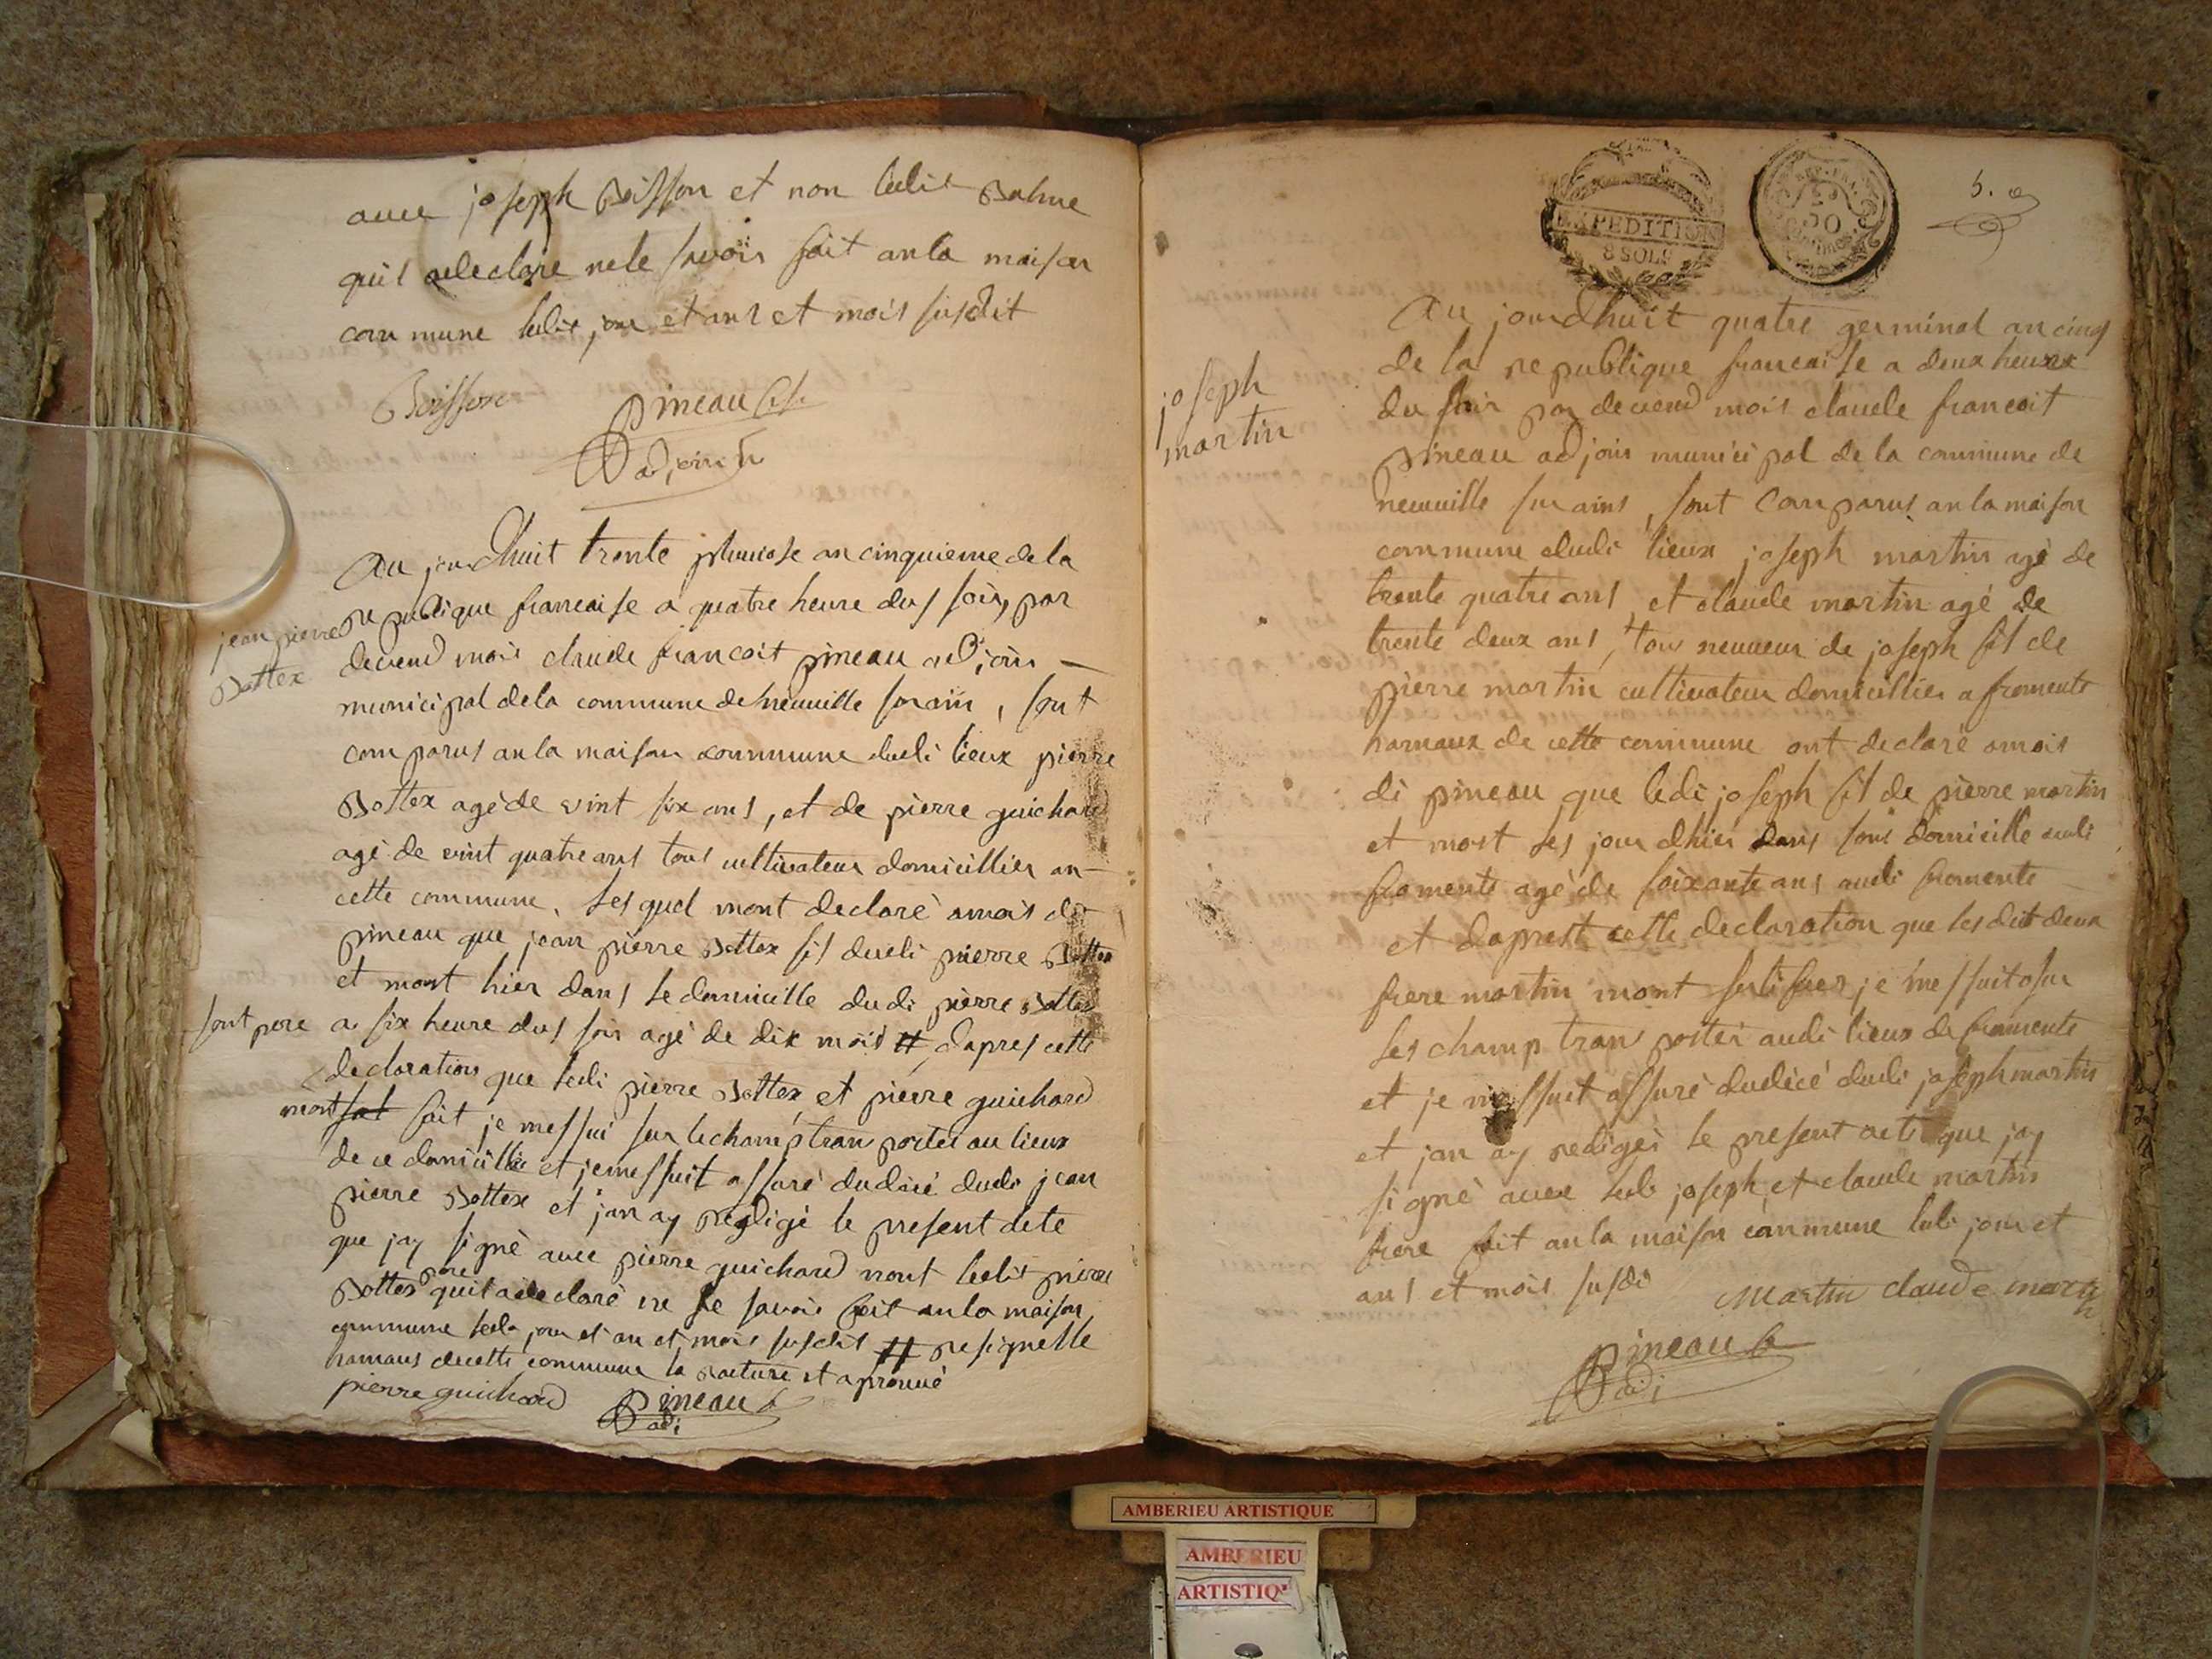 avec joseph Boisson et non ledit Balme
quil adeclare nele savoir fait anla maison
commune ledit jour et ans et mois susdit
Boisson
pineau
adjoint
jean pierre
Bottex
Au jourdhuit trente pluviose an cinquieme de la
republique francaise a quatre heure dus soir, par
devend mois claude francoit pineau adjoin
municipal dela commune de neuville surain, sont
comparus anla maison commune dudi lieux pierre
Bottex agé de vint six ans, et de pierre guichard
agé de vint quatre ans tous cultivateur domicillier an
cette commune, Lesquel mont declaré amois di
pineau que jean pierre Bottex fil dudi pierre Bottex
et mort hier dans le domicille dudi pierre Bottex
sont pere a six heure dus soir agé de dix mois # dapres cette
declaration que ledi pierre Bottex et pierre guichard
mont fait je messui sur le champ tranporter au lieux
de ce domicillie et jemessuit assuré dudicé dudi jean
pierre Bottex et jan ay redigé le present acte
que jay signé avec pierre guichard nont ledit pierre
Bottex pere quil adeclaré ne le savoir fait anla maison
commune ledi jour et an et mois susdit # resignelle
hamaus decette commune la rature et aprouvé
pierre guichard pineau
adj
EXPEDITION
8 SOLS
REP. FRA.
50
5.
joseph
martin
Au jourdhuit quatre germinal an cinq
de la republique francaise a deux heures
du soir par devend mois claude francoit
pineau adjoin municipal de la commune de
neuville sur ains, sont comparus an la maison
commune dudi lieux joseph martin agé de
trente quatre ans, et claude martin agé de
trente deux ans, tous neuveux de joseph fil de
pierre martin cultivateur domicillier a fromente
hamaux de cette commune ont declaré amois
di pineau que ledi joseph fil de pierre martin
et mort les jour dhier dans sont domicille audi
fromente agé de soixante ans audi fromente
et daprest cette declaration que les dit deux
frere martin mont je messuit sur
les champ transporter audi lieux de fromente
et je messuit assuré dudicé dudi joseph martin
et jan ay rediger le present acte que jay
signé avec ledi joseph et claude martin
frere fait anla maison commune ledi jour et
ans et mois susdi Martin claude martin
pineau
adj
AMBERIEU ARTISTIQUE
AMBERIEU
ARTISTIQ